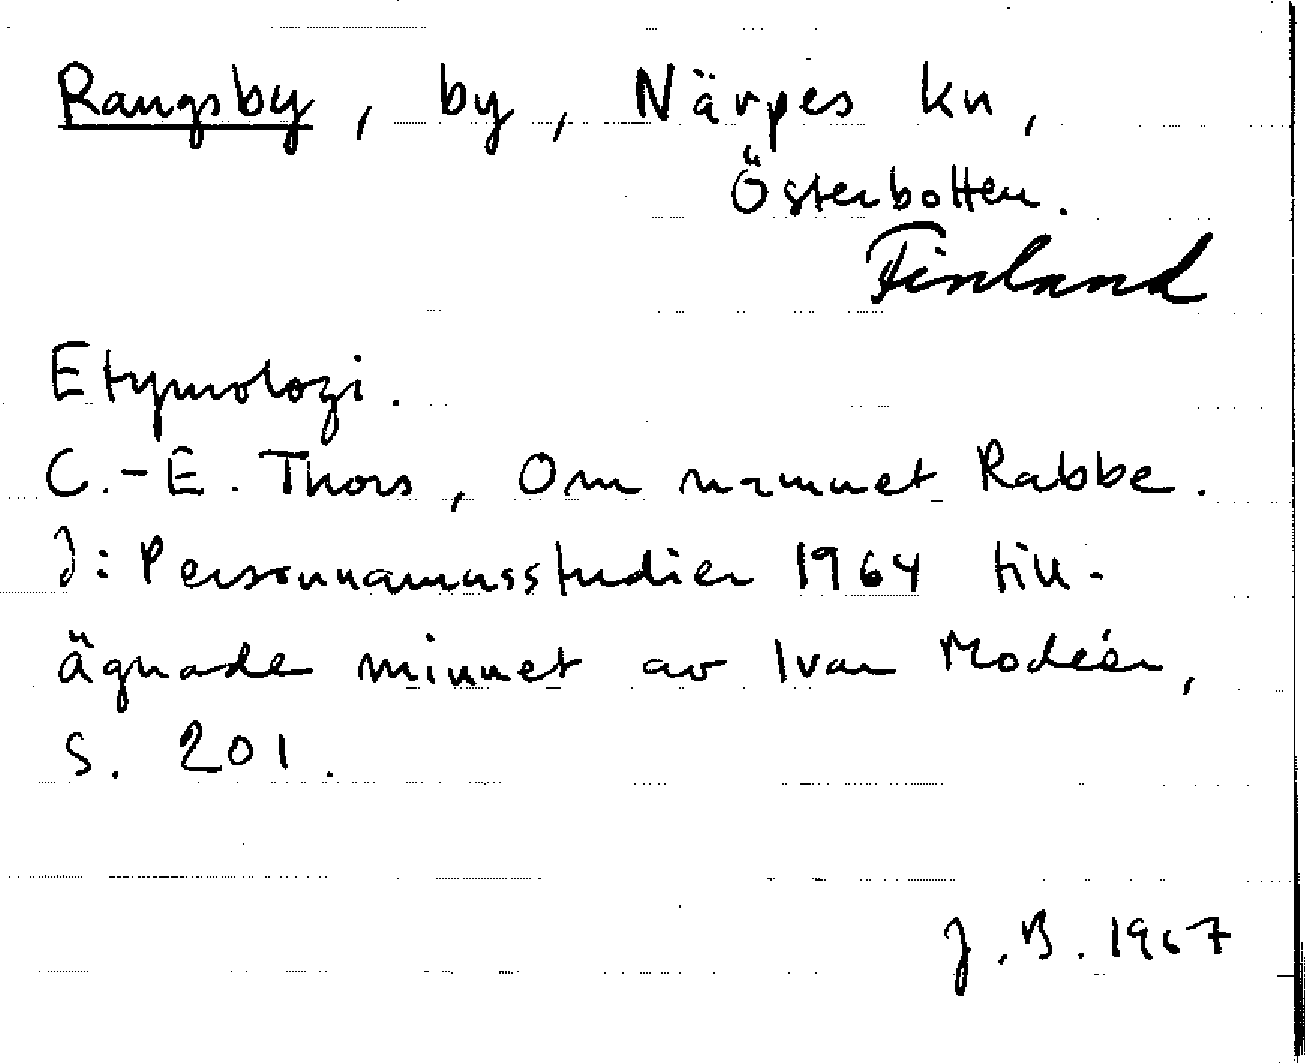 Rangsby, by, Närpes kn,
Österbotten.
Finland
Etymologi.
C.-E. Thors, Om namnet Rabbe.
I: Personnamnsstudier 1964 till-
ägnade minnet av Ivar Modéer,
s. 201.
J.B. 1967